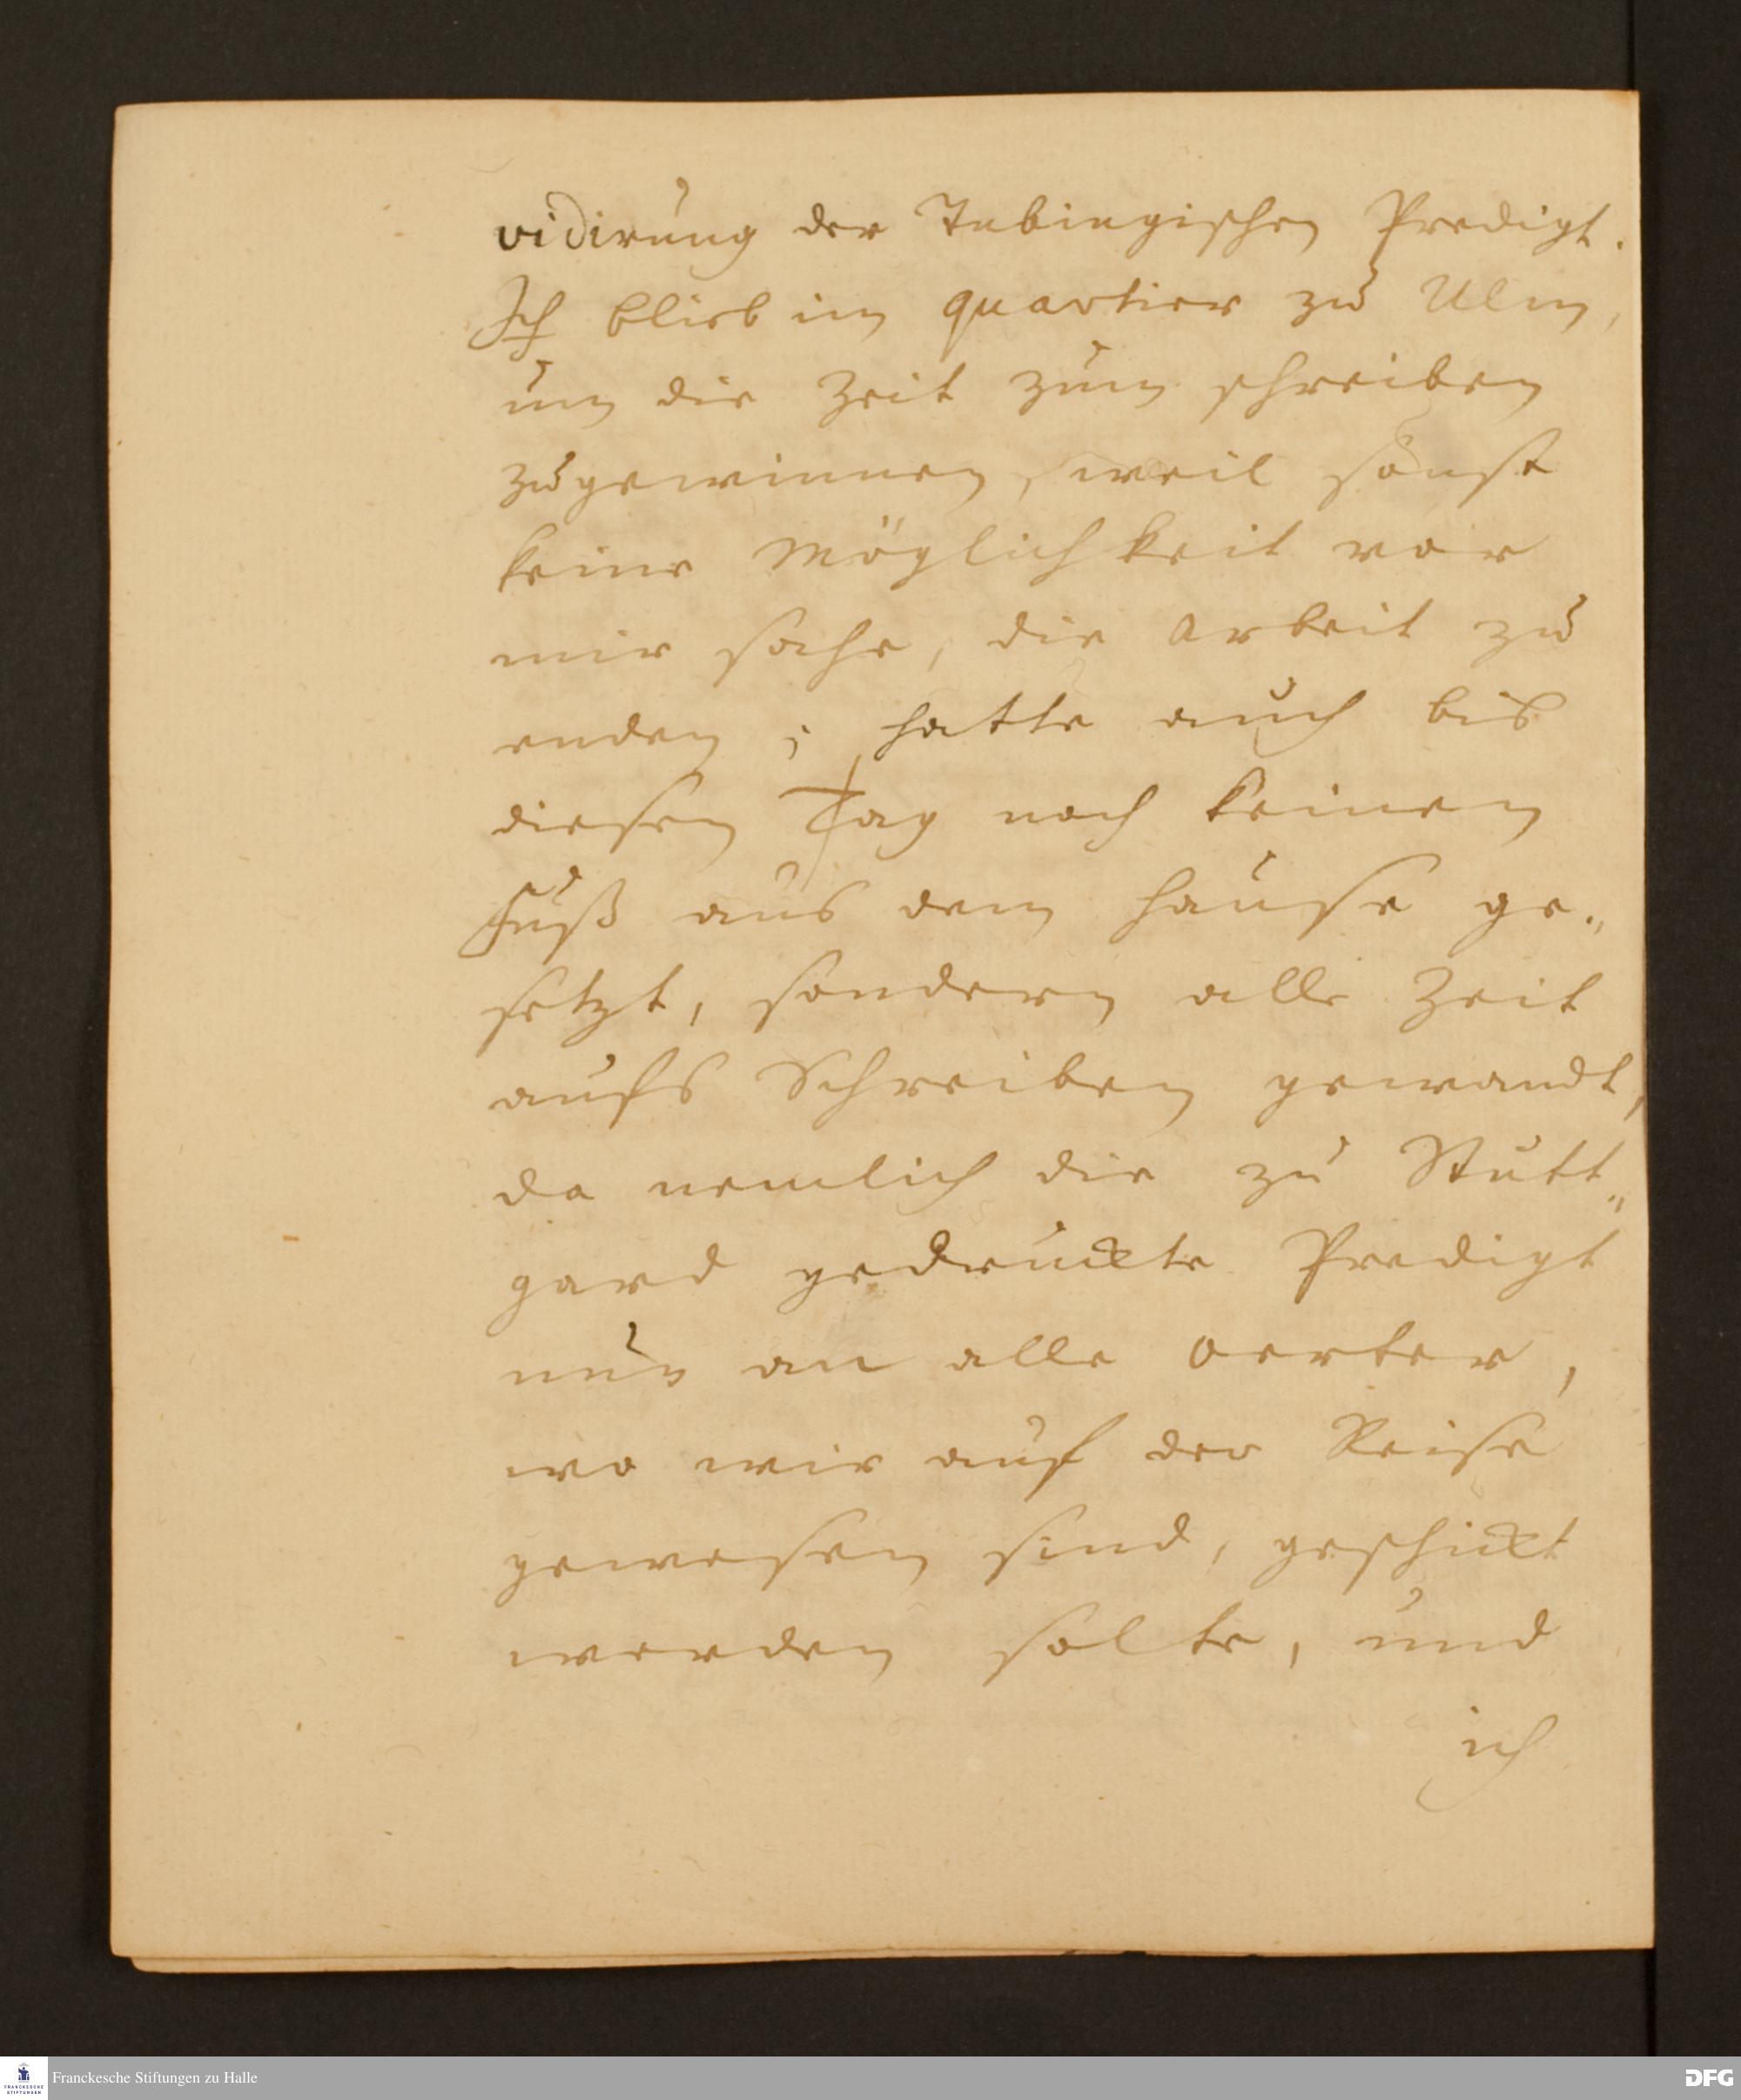 vidirung der Tubingischen Predigt.
Ich blieb im quartier zu Ulm,
um die Zeit zum schreiben
zugewinnen, weil sonst
keine Möglichkeit vor
mir sahe, die arbeit zu
enden; hatte auch bis
diesen Tag noch keinen
Fuß aus dem hause ge-
setzt, sondern alle Zeit
aufs Schreiben gewandt,
da nemlich die zu Stutt-
gard gedruckte Predigt
nun an alle oerter,
wo wir auf der Reise
gewesen sind, geschickt
werden solte, und
ich
FRANCKESCHE STIFTUNGEN
Franckesche Stiftungen zu Halle
DFG